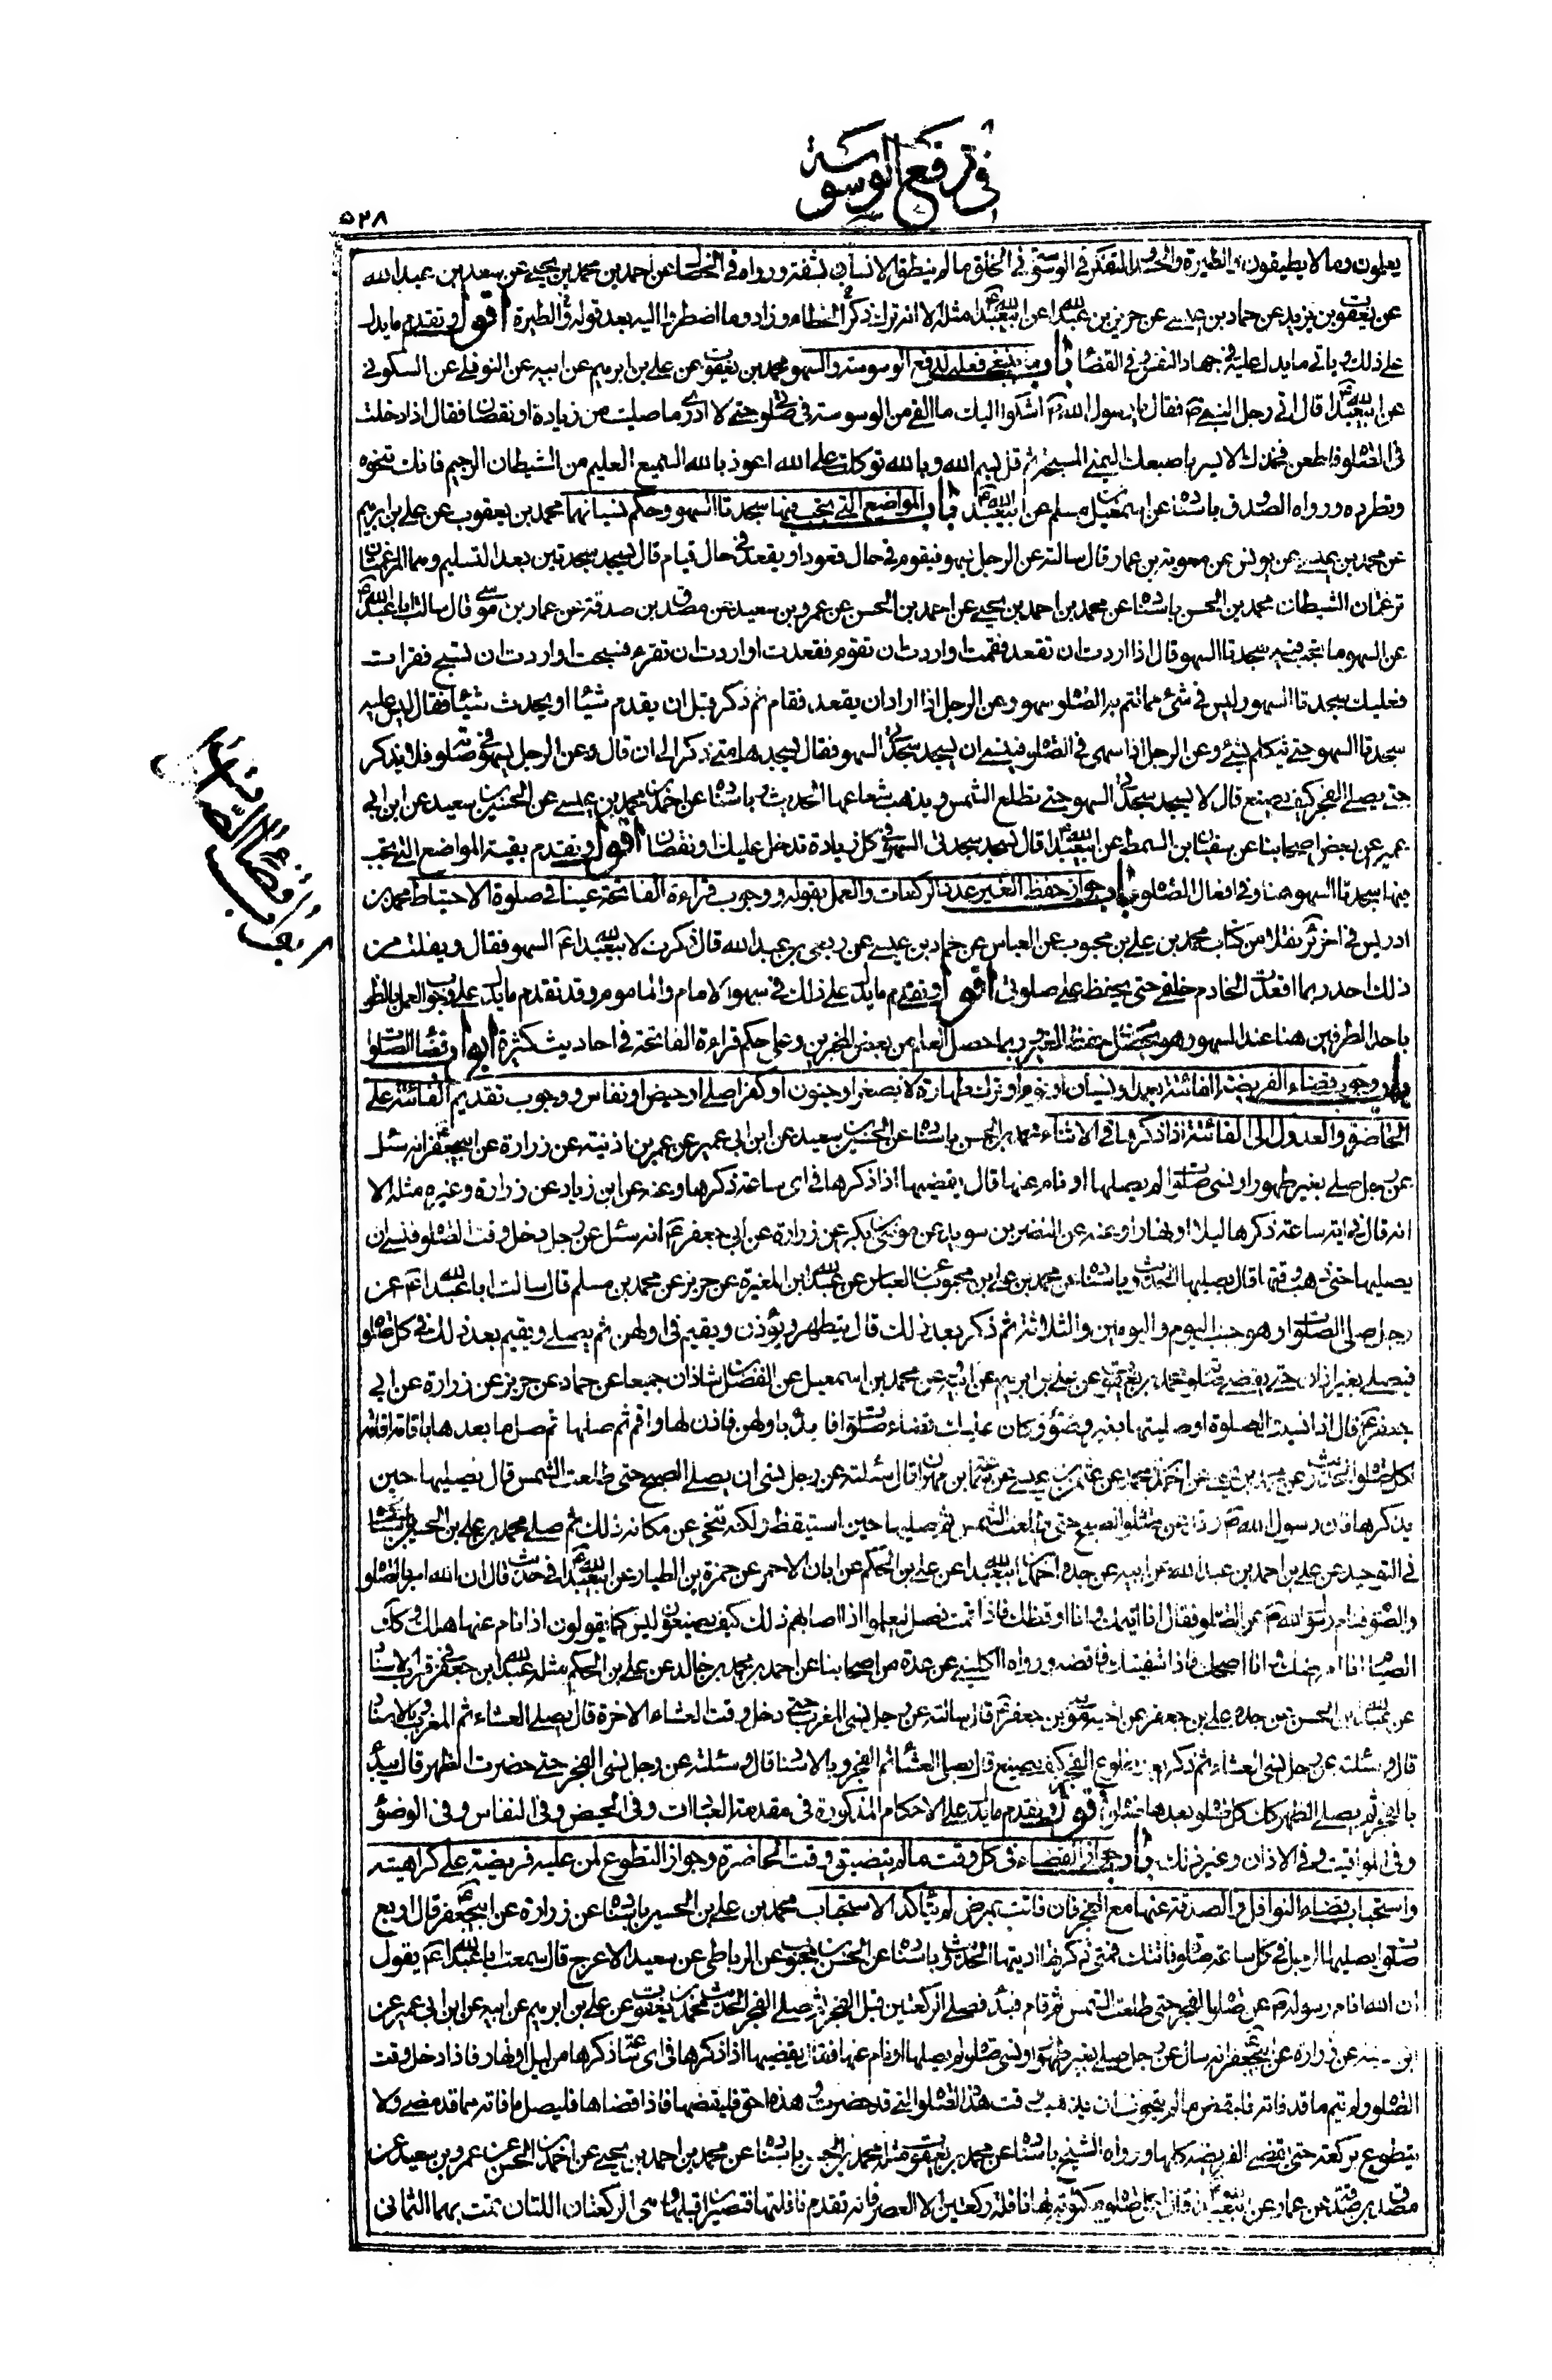 في ترفع الوسوسة
٥٢٨
يعلمون وما لا يطيقون والطيرة والحسد والتفكر في الوسوسة في الخلق ما لم ينطق الانسان بشفة ورواه في الخصال عن احمد بن محمد بن يحيى عن سعد بن عبد الله
عن يعقوب بن يزيد عن حماد بن عيسى عن حريز بن عبد الله عن ابيعبد الله ع مثله الا انه ترك ذكر الخطاء وزاد وما اضطروا اليه بعد قوله والطيرة اقول وتقدم ما يدل
على ذلك وياتي ما يدل عليه في جهاد النفس وفي القضا باب ما ينبغي فعله لدفع الوسوسة والسهو محمد بن يعقوب عن علي بن ابرهيم عن ابيه عن النوفلي عن السكوني
عن ابيعبد الله ع قال اتى رجل النبي ص فقال يا رسول الله ص اشكوا اليك ما القى من الوسوسة في صلوتي حتى لا ادري ما صليت من زيادة او نقصان فقال اذا دخلت
في الصلوة فاطعن فخذك الايسر باصبعك اليمنى المسبحة ثم قل بسم الله وبالله توكلت على الله اعوذ بالله السميع العليم من الشيطان الرجيم فانك تنحره
وتطرده ورواه الصدوق باسناده عن اسمعيل بن مسلم عن ابيعبد الله ع باب المواضع التي يجب فيها سجدتا السهو وحكم نسيانهما محمد بن يعقوب عن علي بن ابرهيم
عن محمد بن عيسى عن يونس عن معوية بن عمار قال سالته عن الرجل يسهو فيقوم في حال قعود او يقعد في حال قيام قال يسجد سجدتين بعد التسليم وهما المرغمتان
ترغمان الشيطان محمد بن الحسن باسناده عن محمد بن احمد بن يحيى عن احمد بن الحسن عن عمرو بن سعيد عن مصدق بن صدقة عن عمار بن موسى قال سالت ابا عبد الله ع
عن السهو ما تجب فيه سجدتا السهو قال اذا اردت ان تقعد فقمت او اردت ان تقوم فقعدت او اردت ان تقرء فسبحت او اردت ان تسبح فقرات
فعليك سجدتا السهو وليس في شئ مما تتم به الصلوة سهو وعن الرجل اذا اراد ان يقعد فقام ثم ذكر قبل ان يقدم شيئا او يحدث شيئا فقال ليس عليه
سجدتا السهو حتى يتكلم بشئ وعن الرجل اذا سهى في الصلوة فينسى ان يسجد سجدتي السهو فقال يسجدهما متى ذكر الى ان قال وعن الرجل يسهو في صلوته فلا يذكر
حتى يصلي الفجر كيف يصنع قال لا يسجد سجدتي السهو حتى تطلع الشمس ويذهب شعاعها الحديث وباسناده عن احمد بن محمد بن عيسى عن الحسين بن سعيد عن ابن ابي
عمير عن بعض اصحابنا عن سفيان بن السمط عن ابيعبد الله ع قال تسجد سجدتي السهو في كل زيادة تدخل عليك او نقصان اقول وتقدم بقية المواضع التي تجب
فيها سجدتا السهو هنا وفي افعال الصلوة باب جواز حفظ الغير عدد الركعات والعمل بقوله ووجوب قراءة الفاتحة عينا في صلوة الاحتياط محمد بن
ادريس في اخر السرائر نقلا من كتاب محمد بن علي بن محبوب عن العباس عن حماد بن عيسى عن ربعي بن عبد الله قال ذكرت لابيعبد الله ع السهو فقال ويفلت من
ذلك احد ربما اقعدت الخادم خلفي حتى يحفظ على صلوتي اقول وتقدم ما يدل على ذلك في سهو الامام والماموم وقد تقدم ما يدل على وجوب العمل بالظن
باحد الطرفين هنا عند السهو وهو يحصل بحفظ الغير وربما حصل العلم من بعض المخبرين وعلى حكم قراءة الفاتحة في احاديث كثيرة ابواب قضاء الصلوات
باب وجوب قضاء الفريضة الفائتة بعمد او نسيان او نوم او ترك طهارة لا بصغر او جنون او كفر اصلي او حيض او نفاس ووجوب تقديم الفائتة على
الحاضرة والعدول الى الفائتة اذا ذكرها في الاثناء محمد بن الحسن باسناده عن الحسين بن سعيد عن ابن ابي عمير عن عمر بن اذينة عن زرارة عن ابيجعفر ع انه سئل
عن رجل صلى بغير طهور او نسي صلوات لم يصلها او نام عنها قال يقضيها اذا ذكرها في اي ساعة ذكرها وعنه عن ابن زياد عن زرارة وغيره مثله الا
انه قال في اية ساعة ذكرها ليلا او نهارا وعنه عن النضر بن سويد عن موسى بن بكر عن زرارة عن ابي جعفر ع انه سئل عن رجل دخل وقت الصلوة فنسي ان
يصليها حتى ذهب وقتها قال يصليها الحديث وباسناده عن محمد بن علي بن محبوب عن العباس عن عبد الله بن المغيرة عن حريز عن محمد بن مسلم قال سالت ابا عبد الله ع عن
رجل صلى الصلوات وهو جنب اليوم واليومين والثلاثة ثم ذكر بعد ذلك قال يتطهر ويؤذن ويقيم في اولهن ثم يصلي ويقيم بعد ذلك في كل صلوة
فيصلي بغير اذان حتى يقضي صلوته محمد بن يعقوب عن علي بن ابرهيم عن ابيه وعن محمد بن اسمعيل عن الفضل بن شاذان جميعا عن حماد عن حريز عن زرارة عن ابي
جعفر ع قال اذا نسيت الصلوة او صليتها بغير وضوء وكان عليك قضاء صلوات فابدء باولهن فاذن لها واقم ثم صلها ثم صل ما بعدها باقامة اقامة
لكل صلوة الحديث وعن محمد بن يحيى عن احمد بن محمد عن عثمان بن عيسى عن سماعة بن مهران قال سئلته عن رجل نسي ان يصلي الصبح حتى طلعت الشمس قال يصليها حين
يذكرها فان رسول الله ص رقد عن صلوة الصبح حتى طلعت الشمس ثم صليها حين استيقظ ولكنه تنحى عن مكانه ذلك ثم صلى محمد بن علي بن الحسين
في التوحيد عن علي بن احمد بن عبد الله عن ابيه عن جده احمد بن ابيعبد الله عن علي بن الحكم عن ابان الاحمر عن حمزة بن الطيار عن ابيعبد الله ع في حديث قال ان الله امر بالصلوة
والصوم فنام رسول الله ص عن الصلوة فقال انا انيمك وانا اوقظك فاذا قمت فصل ليعلموا اذا اصابهم ذلك كيف يصنعون ليس كما يقولون اذا نام عنها هلك وكذلك
الصيام انا امرضك وانا اصحك فاذا شفيتك فاقضه ورواه الكليني عن عدة من اصحابنا عن احمد بن محمد بن خالد عن علي بن الحكم مثله عبد الله بن جعفر في قرب الاسناد
عن عبد الله بن الحسن عن جده علي بن جعفر عن اخيه موسى بن جعفر ع قال سالته عن رجل نسي المغرب حتى دخل وقت العشاء الاخرة قال يصلي العشاء ثم المغرب وبالاسناد
قال وسئلته عن رجل نسي العشاء ثم ذكر بعد طلوع الفجر كيف يصنع قال يصلي العشاء ثم الفجر وبالاسناد قال وسئلته عن رجل نسي الفجر حتى حضرت الظهر قال يبدء
بالفجر ثم يصلي الظهر كذلك كل صلوة بعدها صلوة اقول وتقدم ما يدل على الاحكام المذكورة في مقدمة العبادات وفي الحيض وفي النفاس وفي الوضوء
وفي المواقيت وفي الاذان وغير ذلك باب جواز القضاء في كل وقت ما لم يتضيق وقت الحاضرة وجواز التطوع لمن عليه فريضة على كراهية
واستحباب قضاء النوافل والصدقة عنها مع العجز فان فاتت بمرض لم يتاكد الاستحباب محمد بن علي بن الحسين باسناده عن زرارة عن ابيجعفر ع قال اربع
صلوات يصليها الرجل في كل ساعة صلوة فاتتك فمتى ذكرتها اديتها الحديث وباسناده عن الحسن بن محبوب عن الرباطي عن سعيد الاعرج قال سمعت ابا عبد الله ع يقول
ان الله انام رسوله ص عن صلوة الفجر حتى طلعت الشمس ثم قام فبدء فصلى الركعتين قبل الفجر ثم صلى الفجر الحديث محمد بن يعقوب عن علي بن ابرهيم عن ابيه عن ابن ابي عمير عن
ابن اذينة عن زرارة عن ابيجعفر ع انه سئل عن رجل صلى بغير طهور او نسي صلوة لم يصلها او نام عنها فقال يقضيها اذا ذكرها في اي ساعة ذكرها من ليل او نهار فاذا دخل وقت
الصلوة ولم يتم ما قد فاته فليقض ما لم يتخوف ان يذهب وقت هذه الصلوة التي قد حضرت وهذه احق فليقضها فاذا قضاها فليصل ما فاته مما قد مضى ولا
يتطوع بركعة حتى يقضي الفريضة كلها ورواه الشيخ باسناده عن محمد بن يعقوب مثله محمد بن الحسن باسناده عن محمد بن احمد بن يحيى عن احمد بن الحسن عن عمرو بن سعيد عن
مصدق بن صدقة عن عمار عن ابيعبد الله ع قال لكل صلوة مكتوبة لها نافلة ركعتين الا العصر فانه تقدم نافلتها فتصيران قبلها وهي الركعتان اللتان تمت بهما الثماني